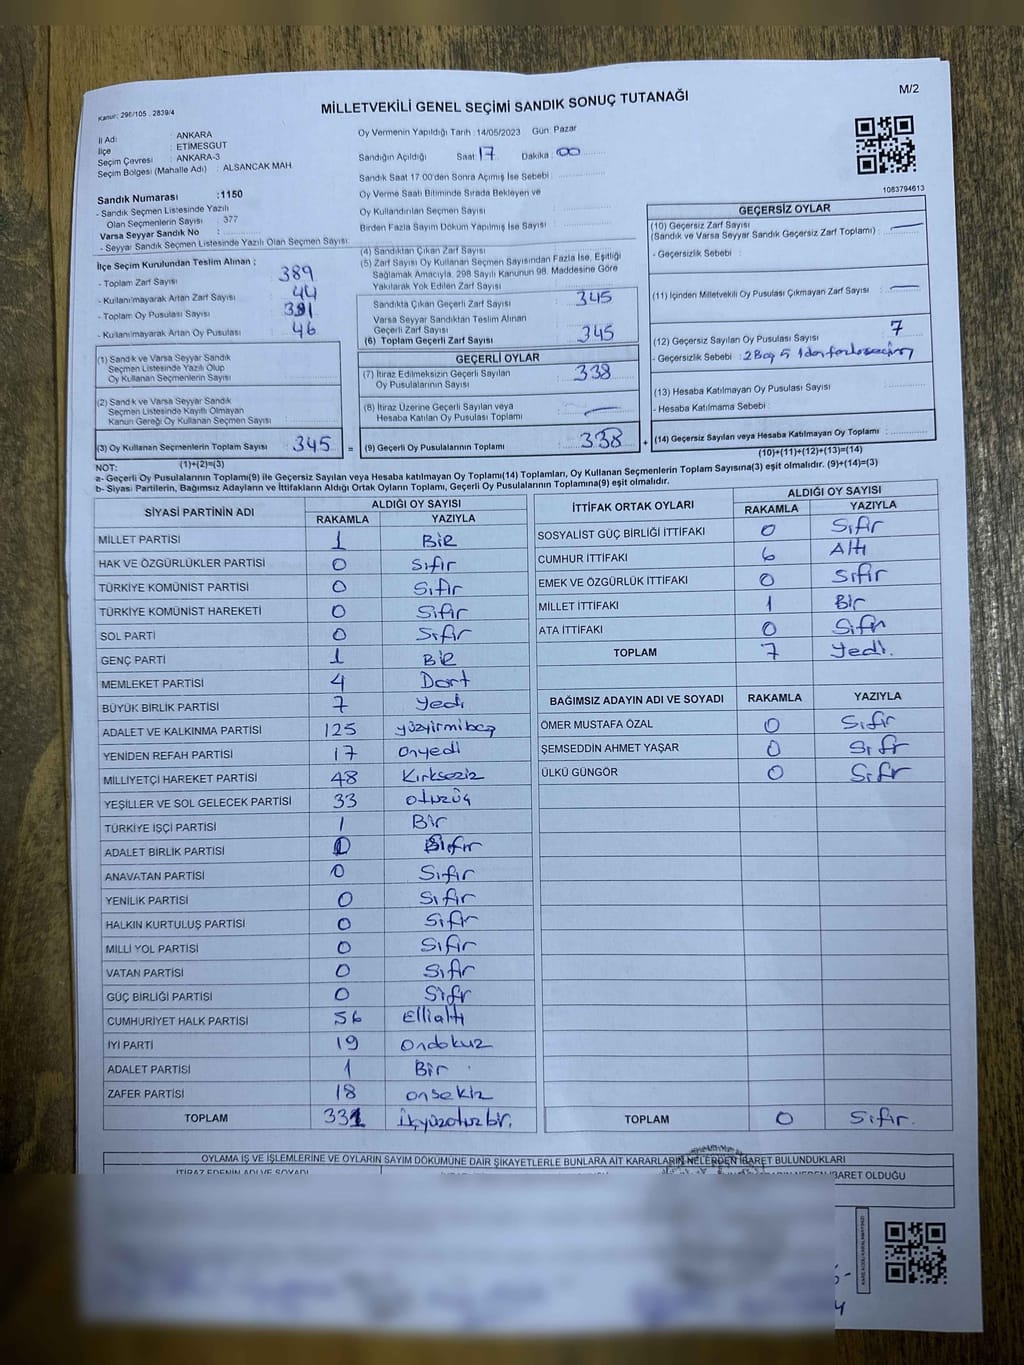 Kanun: 298/105 , 2839/4
MİLLETVEKİLİ GENEL SEÇİMİ SANDIK SONUÇ TUTANAĞI
M/2
İl Adı : ANKARA
İlçe : ETİMESGUT
Seçim Çevresi : ANKARA-3
Seçim Bölgesi (Mahalle Adı) : ALSANCAK MAH.
Sandık Numarası :1150
- Sandık Seçmen Listesinde Yazılı
Olan Seçmenlerin Sayısı : 377
Varsa Seyyar Sandık No :
- Seyyar Sandık Seçmen Listesinde Yazılı Olan Seçmen Sayısı:
Oy Vermenin Yapıldığı Tarih : 14/05/2023 Gün: Pazar
Sandığın Açıldığı Saat: 17 Dakika : 00
Sandık Saat 17.00'den Sonra Açımış İse Sebebi :
Oy Verme Saati Bitiminde Sırada Bekleyen ve
Oy Kullandırılan Seçmen Sayısı :
Birden Fazla Sayım Döküm Yapılmış İse Sayısı :
1083794613
İlçe Seçim Kurulundan Teslim Alınan ;
- Toplam Zarf Sayısı : 389
- Kullanılmayarak Artan Zarf Sayısı : 44
- Toplam Oy Pusulası Sayısı : 391
- Kullanılmayarak Artan Oy Pusulası : 46
(1) Sandık ve Varsa Seyyar Sandık
Seçmen Listesinde Yazılı Olup
Oy Kullanan Seçmenlerin Sayısı :
(2) Sandık ve Varsa Seyyar Sandık
Seçmen Listesinde Kayıtlı Olmayan
Kanun Gereği Oy Kullanan Seçmen Sayısı:
(3) Oy Kullanan Seçmenlerin Toplam Sayısı : 345 =
(1)+(2)=(3)
(4) Sandıktan Çıkan Zarf Sayısı :
(5) Zarf Sayısı Oy Kullanan Seçmen Sayısından Fazla İse, Eşitliği
Sağlamak Amacıyla, 298 Sayılı Kanunun 98. Maddesine Göre
Yakılarak Yok Edilen Zarf Sayısı :
Sandıkta Çıkan Geçerli Zarf Sayısı : 345
Varsa Seyyar Sandıktan Teslim Alınan
Geçerli Zarf Sayısı :
(6) Toplam Geçerli Zarf Sayısı : 345
GEÇERLİ OYLAR
(7) İtiraz Edilmeksizin Geçerli Sayılan
Oy Pusulalarının Sayısı : 338
(8) İtiraz Üzerine Geçerli Sayılan veya
Hesaba Katılan Oy Pusulası Toplamı : —
(9) Geçerli Oy Pusulalarının Toplamı : 338 +
GEÇERSİZ OYLAR
(10) Geçersiz Zarf Sayısı
(Sandık ve Varsa Seyyar Sandık Geçersiz Zarf Toplamı) : —
- Geçersizlik Sebebi :
(11) İçinden Milletvekili Oy Pusulası Çıkmayan Zarf Sayısı : —
(12) Geçersiz Sayılan Oy Pusulası Sayısı : 7
- Geçersizlik Sebebi : 2 Boş 5
(13) Hesaba Katılmayan Oy Pusulası Sayısı :
- Hesaba Katılmama Sebebi :
(14) Geçersiz Sayılan veya Hesaba Katılmayan Oy Toplamı :
(10)+(11)+(12)+(13)=(14)
NOT:
a- Geçerli Oy Pusulalarının Toplamı(9) ile Geçersiz Sayılan veya Hesaba katılmayan Oy Toplamı(14) Toplamları, Oy Kullanan Seçmenlerin Toplam Sayısına(3) eşit olmalıdır. (9)+(14)=(3)
b- Siyasi Partilerin, Bağımsız Adayların ve İttifakların Aldığı Ortak Oyların Toplamı, Geçerli Oy Pusulalarının Toplamına(9) eşit olmalıdır.
SİYASİ PARTİNİN ADI ALDIĞI OY SAYISI
RAKAMLA YAZIYLA
MİLLET PARTİSİ 1 Bir
HAK VE ÖZGÜRLÜKLER PARTİSİ 0 Sıfır
TÜRKİYE KOMÜNİST PARTİSİ 0 Sıfır
TÜRKİYE KOMÜNİST HAREKETİ 0 Sıfır
SOL PARTİ 0 Sıfır
GENÇ PARTİ 1 Bir
MEMLEKET PARTİSİ 4 Dört
BÜYÜK BİRLİK PARTİSİ 7 Yedi
ADALET VE KALKINMA PARTİSİ 125 yüzyirmibeş
YENİDEN REFAH PARTİSİ 17 onyedi
MİLLİYETÇİ HAREKET PARTİSİ 48 Kırksekiz
YEŞİLLER VE SOL GELECEK PARTİSİ 33 otuzüç
TÜRKİYE İŞÇİ PARTİSİ 1 Bir
ADALET BİRLİK PARTİSİ 0 Sıfır
ANAVATAN PARTİSİ 0 Sıfır
YENİLİK PARTİSİ 0 Sıfır
HALKIN KURTULUŞ PARTİSİ 0 Sıfır
MİLLİ YOL PARTİSİ 0 Sıfır
VATAN PARTİSİ 0 Sıfır
GÜÇ BİRLİĞİ PARTİSİ 0 Sıfır
CUMHURİYET HALK PARTİSİ 56 Ellialtı
İYİ PARTİ 19 Ondokuz
ADALET PARTİSİ 1 Bir
ZAFER PARTİSİ 18 onsekiz
TOPLAM 331 üçyüzotuzbir.
İTTİFAK ORTAK OYLARI ALDIĞI OY SAYISI
RAKAMLA YAZIYLA
SOSYALİST GÜÇ BİRLİĞİ İTTİFAKI 0 Sıfır
CUMHUR İTTİFAKI 6 Altı
EMEK VE ÖZGÜRLÜK İTTİFAKI 0 Sıfır
MİLLET İTTİFAKI 1 Bir
ATA İTTİFAKI 0 Sıfır
TOPLAM 7 Yedi.
BAĞIMSIZ ADAYIN ADI VE SOYADI RAKAMLA YAZIYLA
ÖMER MUSTAFA ÖZAL 0 Sıfır
ŞEMSEDDİN AHMET YAŞAR 0 Sıfır
ÜLKÜ GÜNGÖR 0 Sıfır
TOPLAM 0 Sıfır.
OYLAMA İŞ VE İŞLEMLERİNE VE OYLARIN SAYIM DÖKÜMÜNE DAİR ŞİKAYETLERLE BUNLARA AİT KARARLARIN NELERDEN İBARET BULUNDUKLARI
İTİRAZ EDENİN ADI VE SOYADI
NEDEN İBARET OLDUĞU